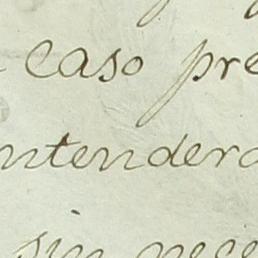 caso pre
ntendera
sin nece